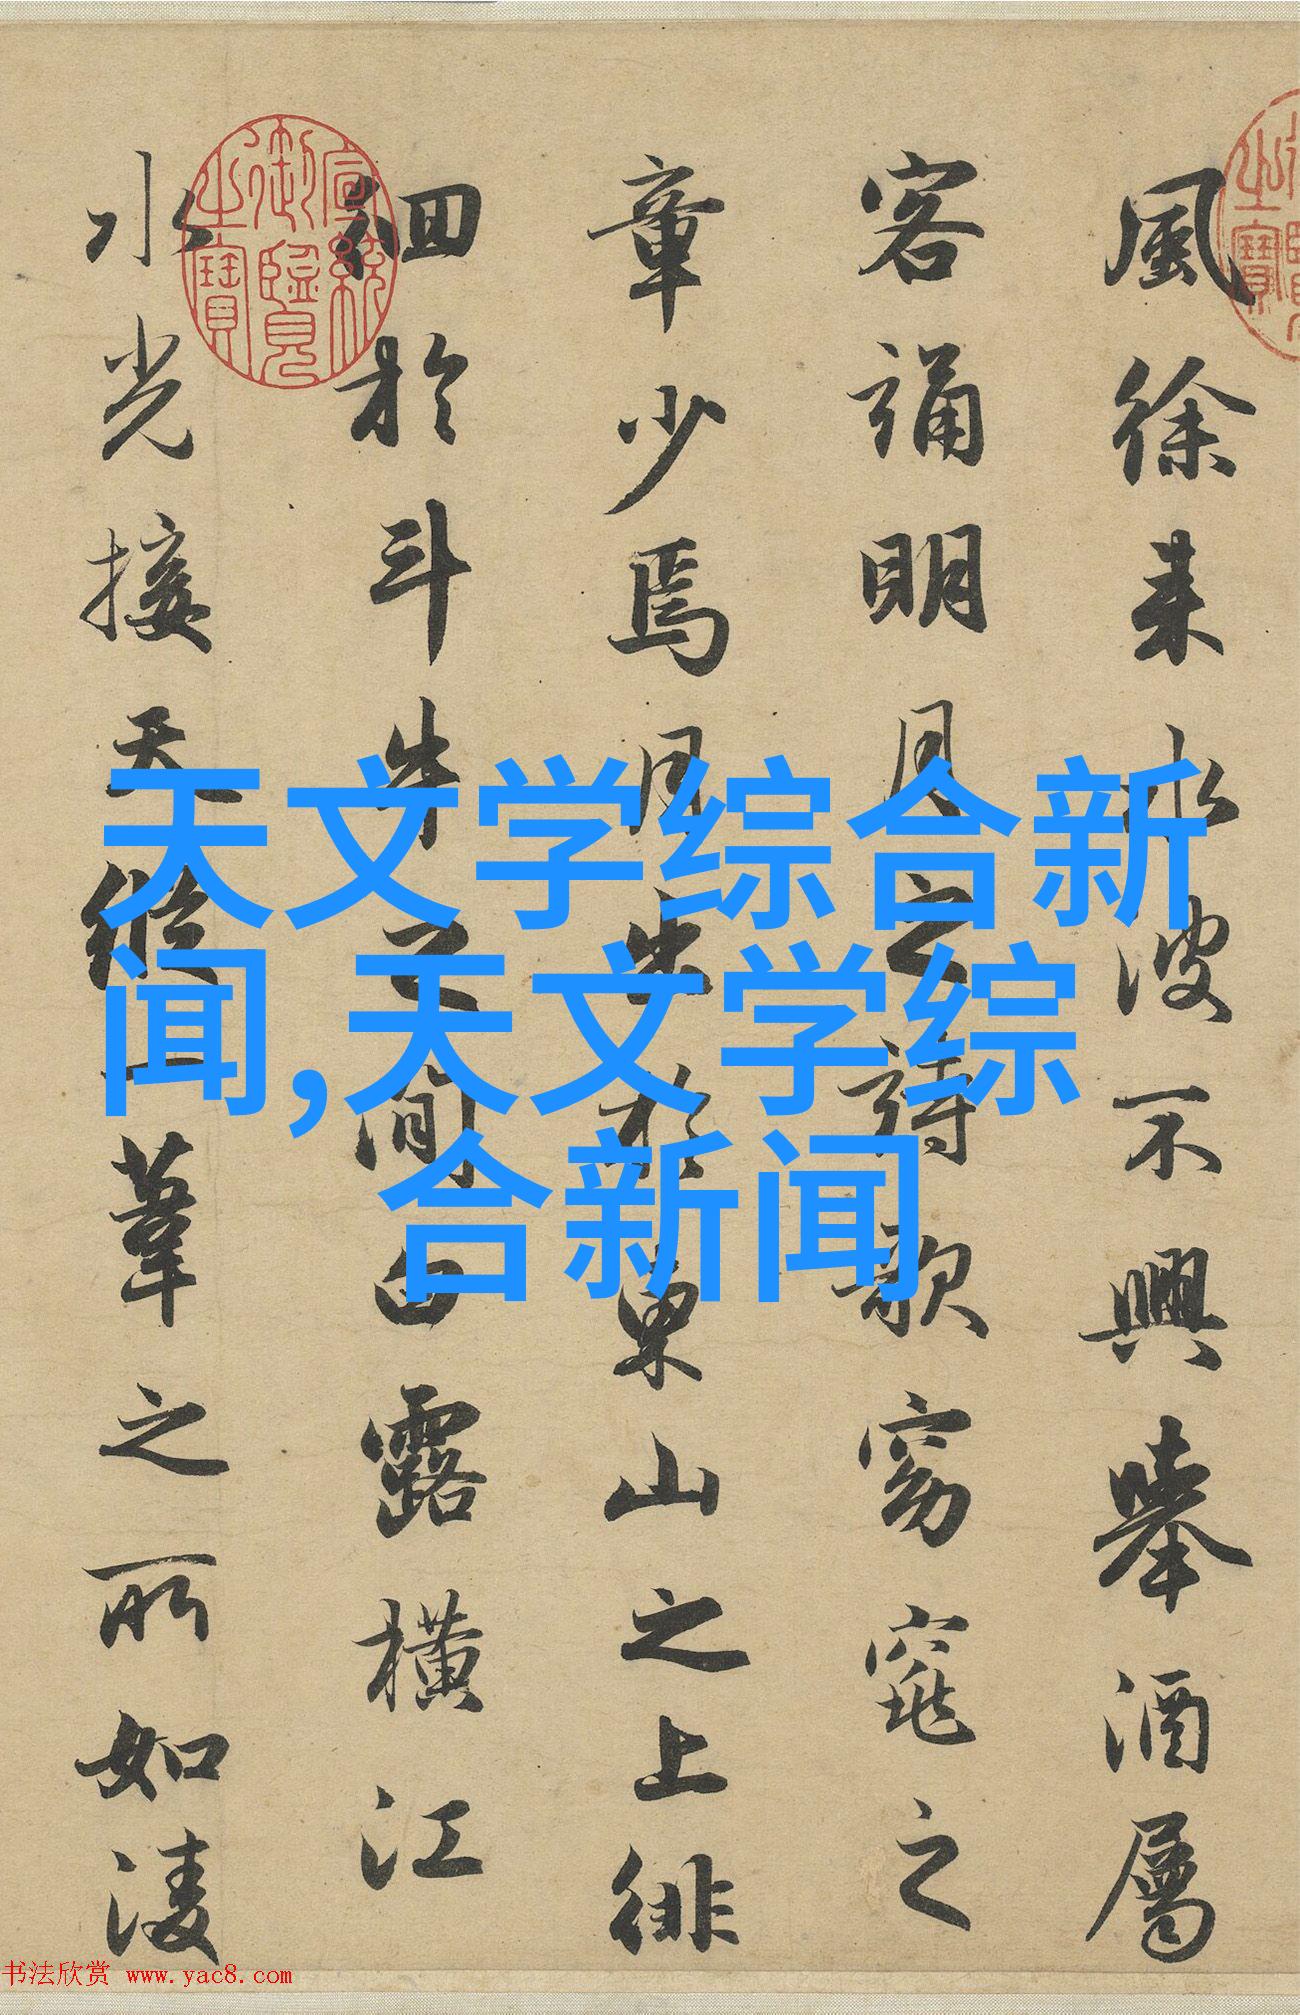 風徐来水波不興舉酒屬
客誦明月之詩歌窈窕之
章少焉月出於東山之上徘
徊於斗牛之间白露橫江
水光接天縱一葦之所如凌
宣統御覽之寶
天文学综合新
闻,天文学综
合新闻
书法欣赏 www.yac8.com